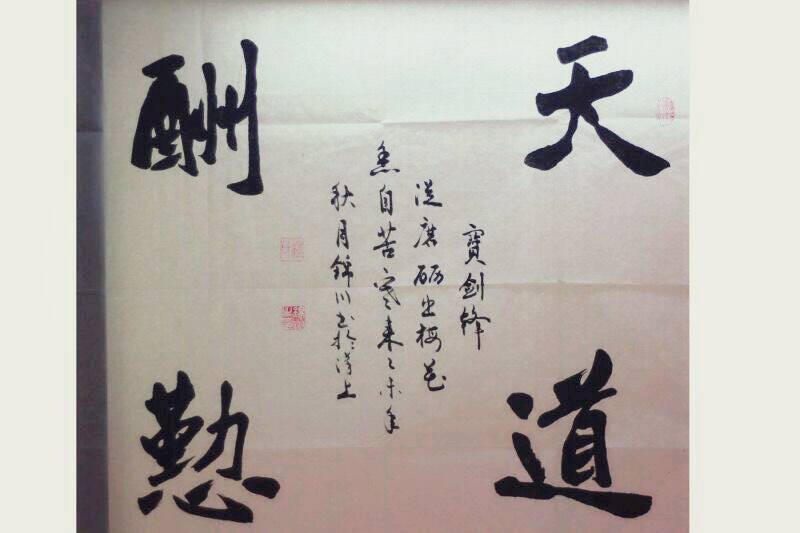 天道
寶劍鋒
從磨砺出梅花
香自苦寒来乙未年
秋月錦川书於上
酬懃